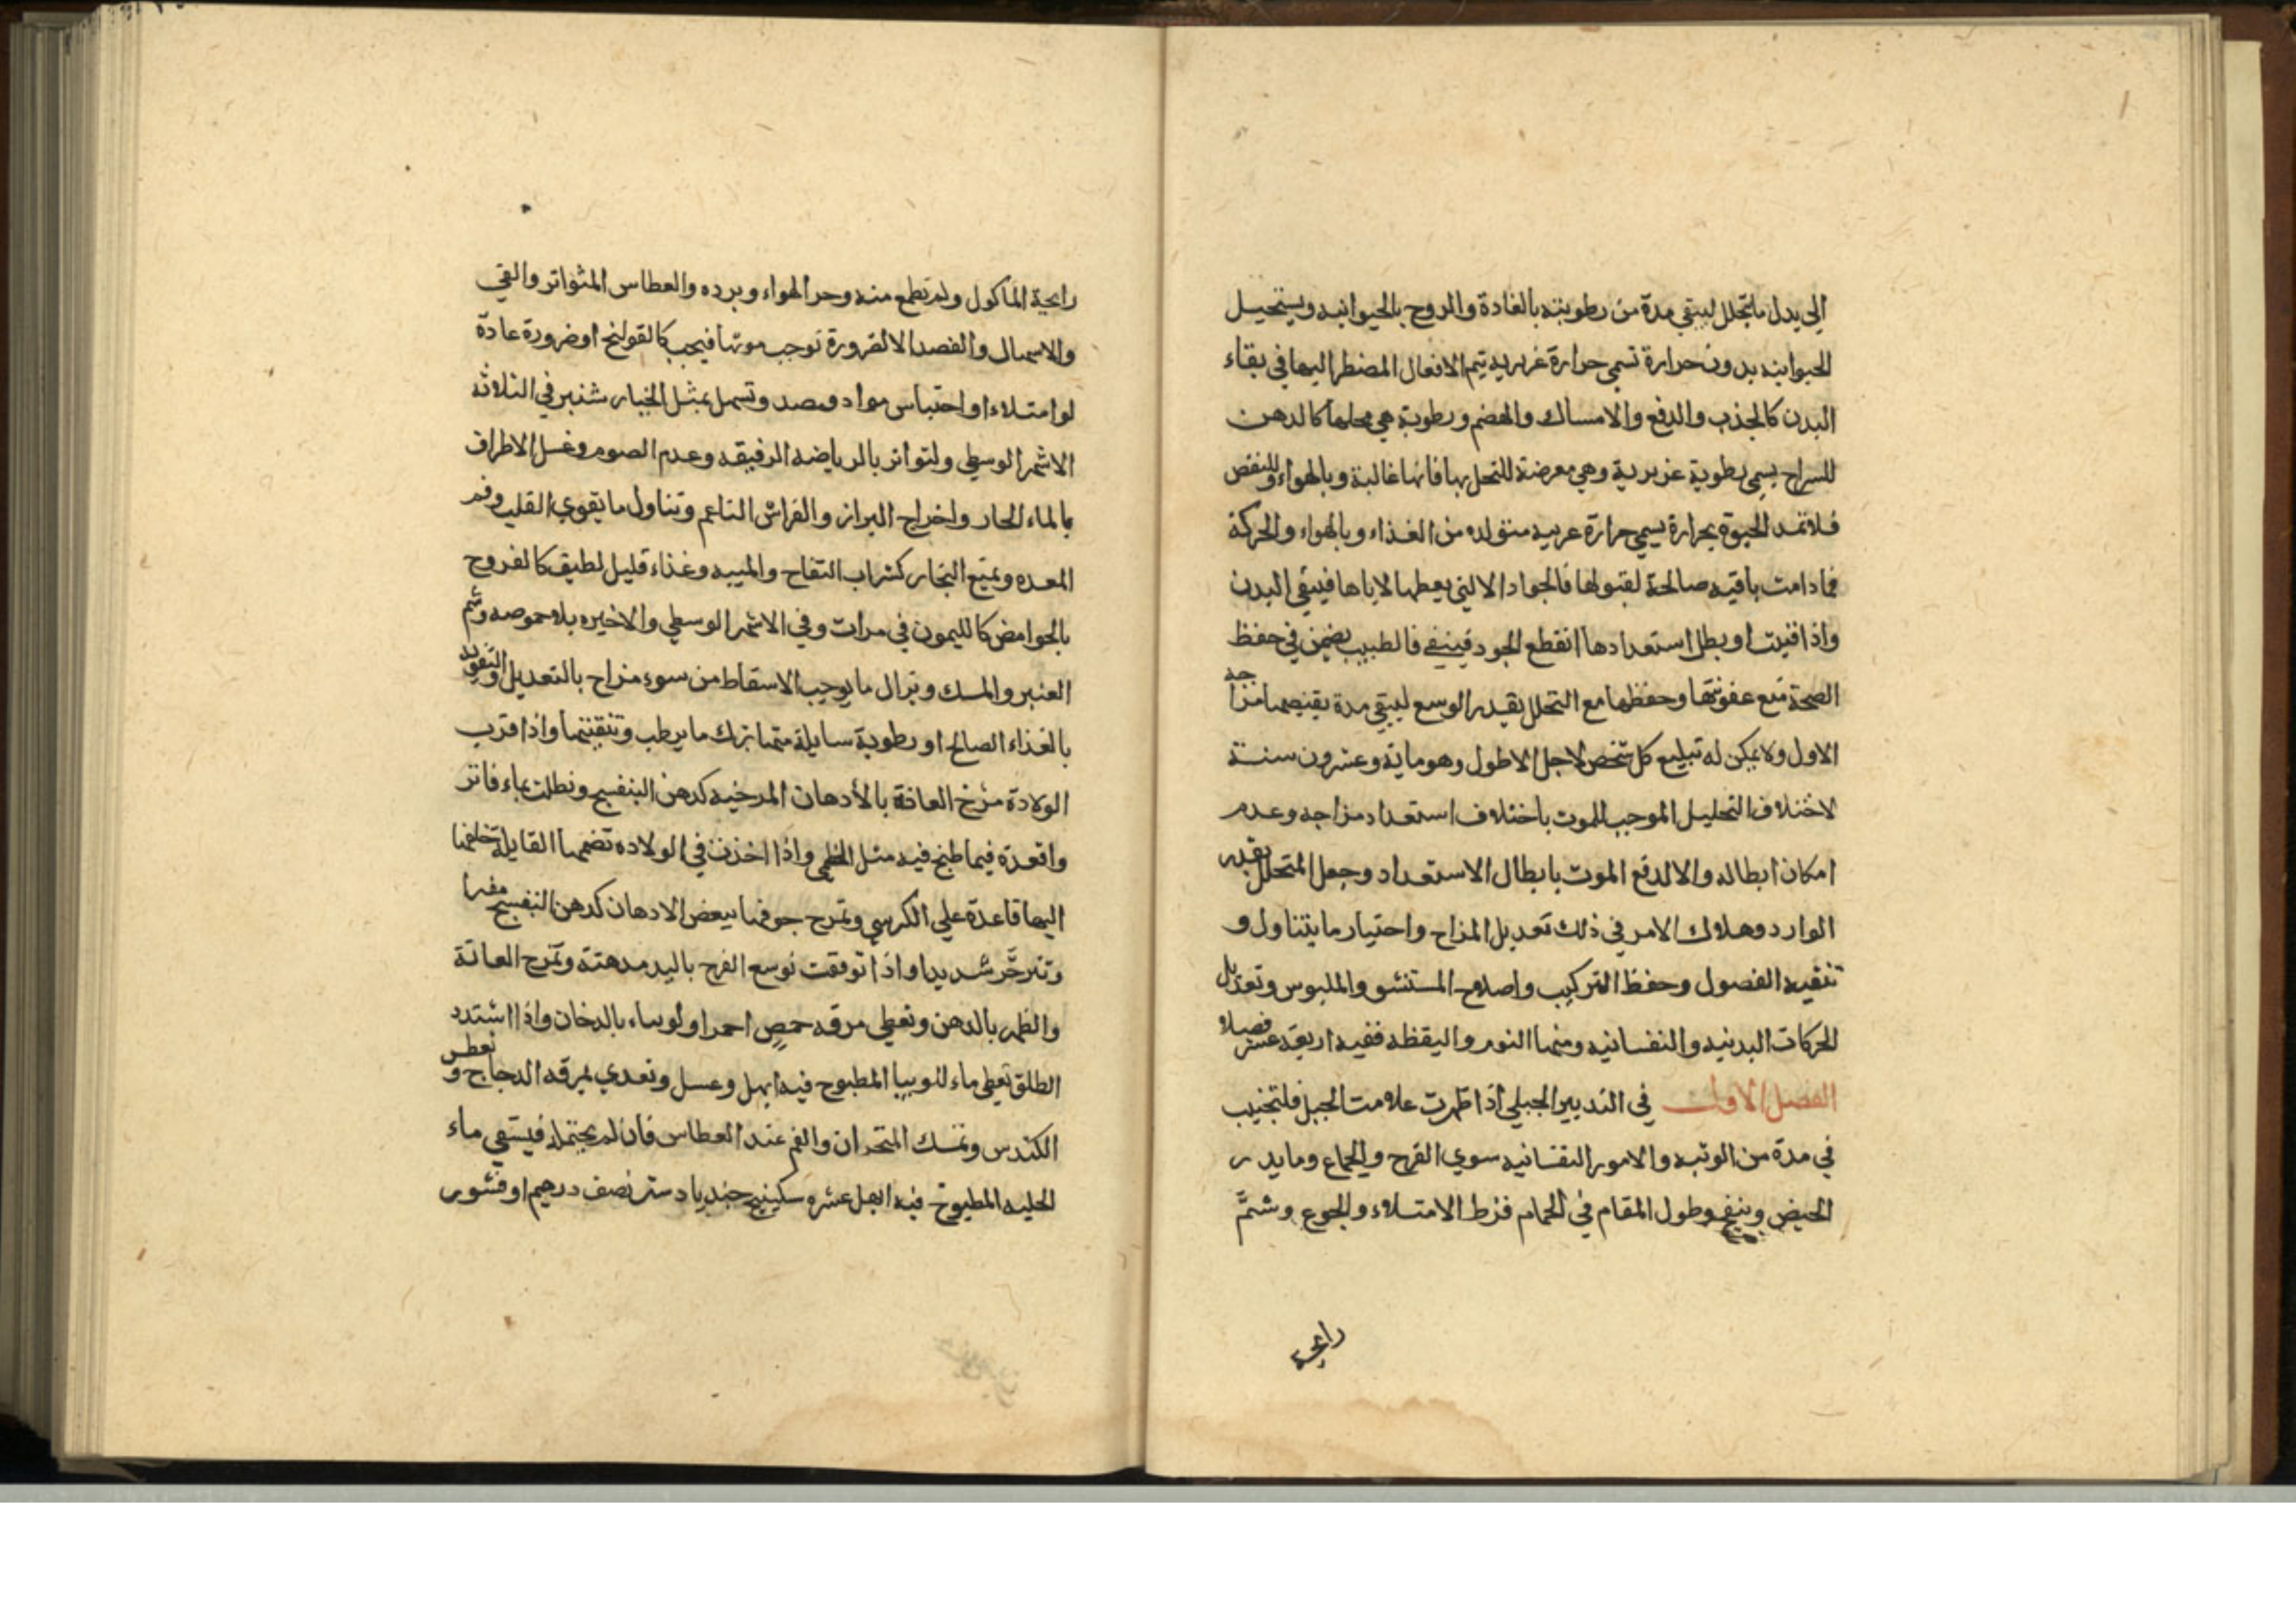 الي بدل ما يتحلل ليبقي مدة من رطوبته بالغادة والروح بالحيوانيه ويستحيل
الحيوانيه بدون حرارة تسمي حرارة غريريه يتم الافعال المضطر اليها في بقاء
البدن كالجذب والدفع والامساك والهضم ورطوبة هي محلها كالدهن
للسراج يسمي رطوبة غريرية وهي معرضة للتحلل بها فانها غالبة وبالهواء وللنفض
فلا تمد الحيوة بحرارة يسمي حرارة غريبه متولده من الغذاء وبالهواء والحركة
فما دامت باقيه صالحة لقبولها فالجواد الالهي يعطها الاياها فيبقي البدن
واذا فنيت او بطل استعدادها انقطع الجود فينفي فالطبيب يضمن في حفظ
الصحة منع عفونتها وحفظها مع التحلل بقدر الوسع ليبقي مدة يقتضيها مزاجه
الاول ولا يمكن له تبليع كل شخص لاجل الاطول وهو ماية وعشرون سنة
لاختلاف التحليل الموجب للموت باختلاف استعداد مزاجه وعدم
امكان ابطاله والا لدفع الموت بابطال الاستعداد وجعل المتحلل بقدر
الوارد وهلاك الامر في ذلك تعديل المزاج واحتيار ما يتناول و
تنقيه الفصول وحفظ التركيب واصلاح المستنشو والملبوس وتعديل
الحركات البدنيه والنفسانيه ومنها النوم واليقظه ففيه اربعة عشر فصلا
الفصل الاول في التدبير الجبلي اذا ظهرت علامت الحبل فلتجنيب
في مدة من الوثبه والامور النفسانيه سوي الفرح والجماع وما يدر
الحيض وينفع وطول المقام في الحمام فرط الامتلاء والجوع وشمّ
رايحة
رايحة الماكول ولم تطمع منه وحر الهواء وبرده والعطاس المتواتر والقي
والاسهال والفصد الا لضرورة توجب موتها فيجب كالقولنج او ضرورة عادة
لو امتلاء او احتباس مواد ومصد وتسهل بمثل الخيار شنبر في الثلاثه
الاشهر الوسطي ولتواتر بالرياضه الرفيقه وعدم الصوم وغسل الاطراف
بالماء الحار واخراج البراز والفراش الناعم وتناول ما يقوي القلب وفم
المعده ويمنع البخار كشراب التفاح والميبه وغذاء قليل لطيف كالفروج
بالحوامض كالليمون في مرات وفي الاشهر الوسطي والاخيره بلا حموصه وشم
العنبر والمسك وتزال ما يوجب الاسقاط من سوء مزاج بالتعديل والتقويه
بالغذاء الصالح او رطوبة سايلة متها ترك ما يرطب وتنقيتها واذا قرب
الولادة مرخ العانة بالأدهان المرخيه كدهن البنفسج ونطلت بماء فاتر
واقعدة فيما طبخ فيه مثل الخطمي واذا اخذت في الولاده تضمها القابلة خلفها
اليها قاعدة علي الكرسي وتمرح جوفها ببعض الادهان كدهن البنفسج مفترا
وتزحّر شديدا واذا توقفت توسع الفرج باليد مدهنة وتمرج العانة
والظهر بالدهن وتعطي مرقه حمص احمر اولوبياء بالدخان واذا اشتدد
الطلق تعطي ماء للوبيا المطبوح فيه ابهل وعسل وتعدي بمرقه الدجاج وتعطس
الكندس وتمسك المنخران والفم عند العطاس فان لم يحتمله فيستقي ماء
الحلبه المطبوخ فيه ابهل عشره سكينج جندبادستر نصف درهم او قشور